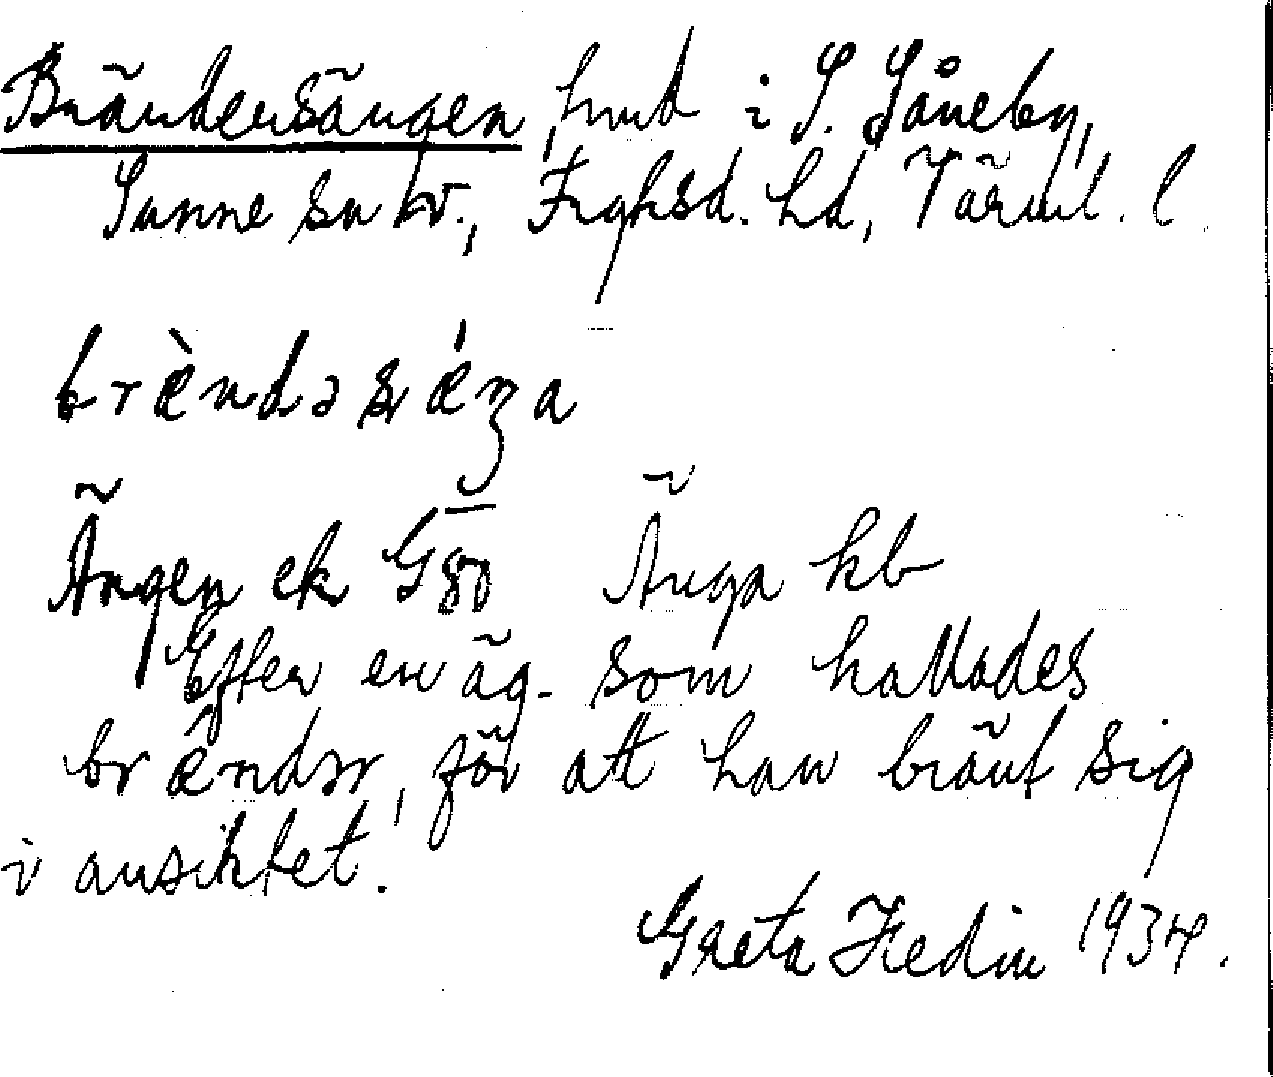 Brändersängen, hmd i S. Såneby,
Sunne sn kv., Fryksd. hd, Värml. l.
bræ̀ndəsǽŋa
Ängen ek G 80 Änga kb
Efter en äg. som kallades
brændər, för att han bränt sig
i ansiktet.
Greta Hedin 1934.